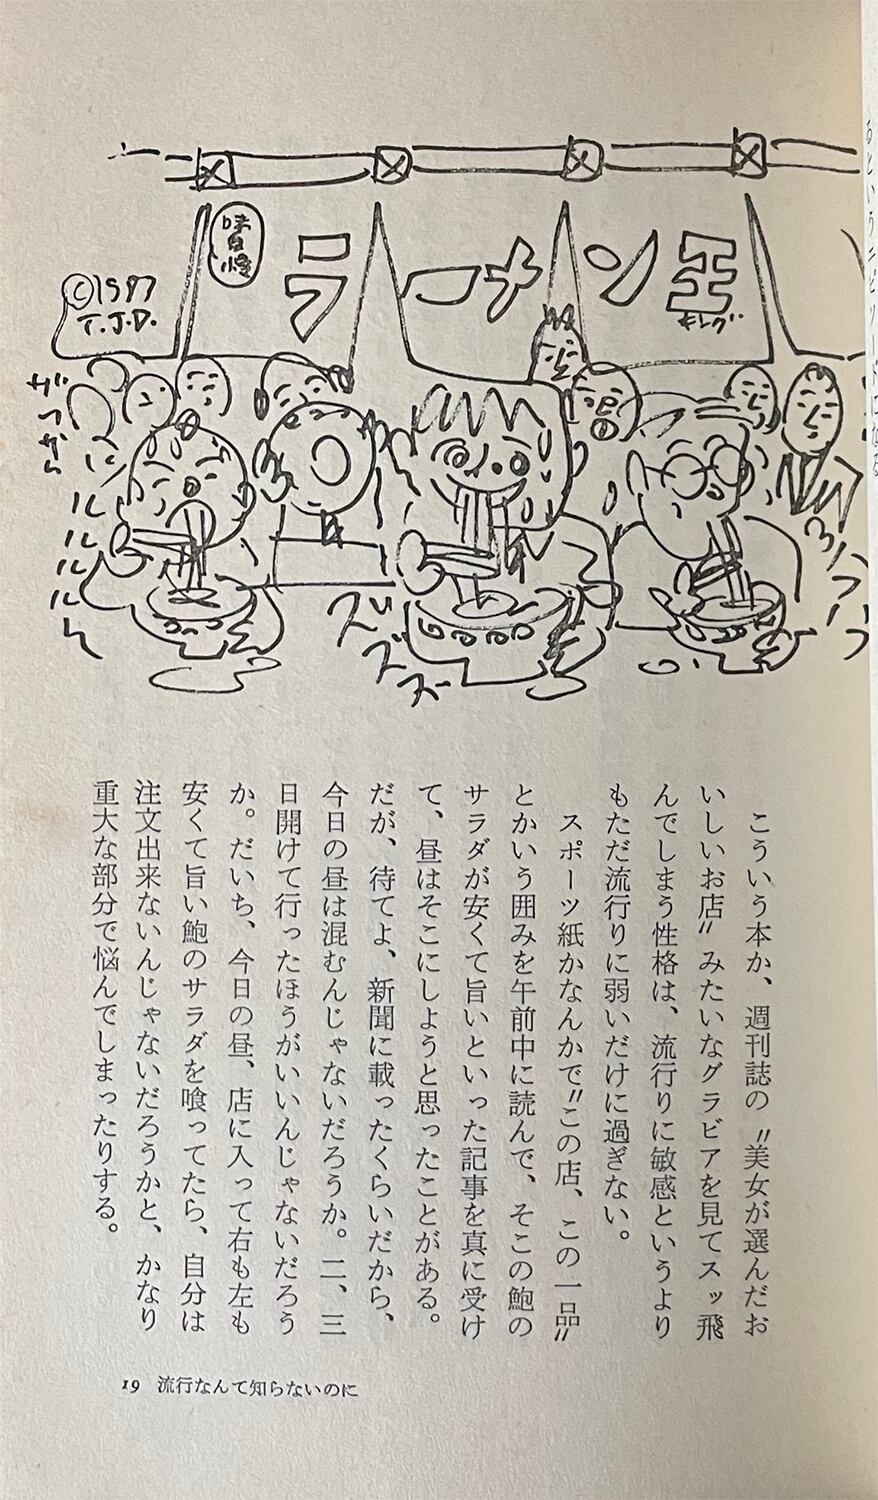 味自慢
ラーメン王
キング
©1987
T.J.D.
ズズズ
こういう本か、週刊誌の〝美女が選んだお
いしいお店〟みたいなグラビアを見てスッ飛
んでしまう性格は、流行りに敏感というより
もただ流行りに弱いだけに過ぎない。
スポーツ紙かなんかで〝この店、この一品〟
とかいう囲みを午前中に読んで、そこの鮑の
サラダが安くて旨いといった記事を真に受け
て、昼はそこにしようと思ったことがある。
だが、待てよ、新聞に載ったくらいだから、
今日の昼は混むんじゃないだろうか。二、三
日開けて行ったほうがいいんじゃないだろう
か。だいち、今日の昼、店に入って右も左も
安くて旨い鮑のサラダを喰ってたら、自分は
注文出来ないんじゃないだろうかと、かなり
重大な部分で悩んでしまったりする。
19 流行なんて知らないのに